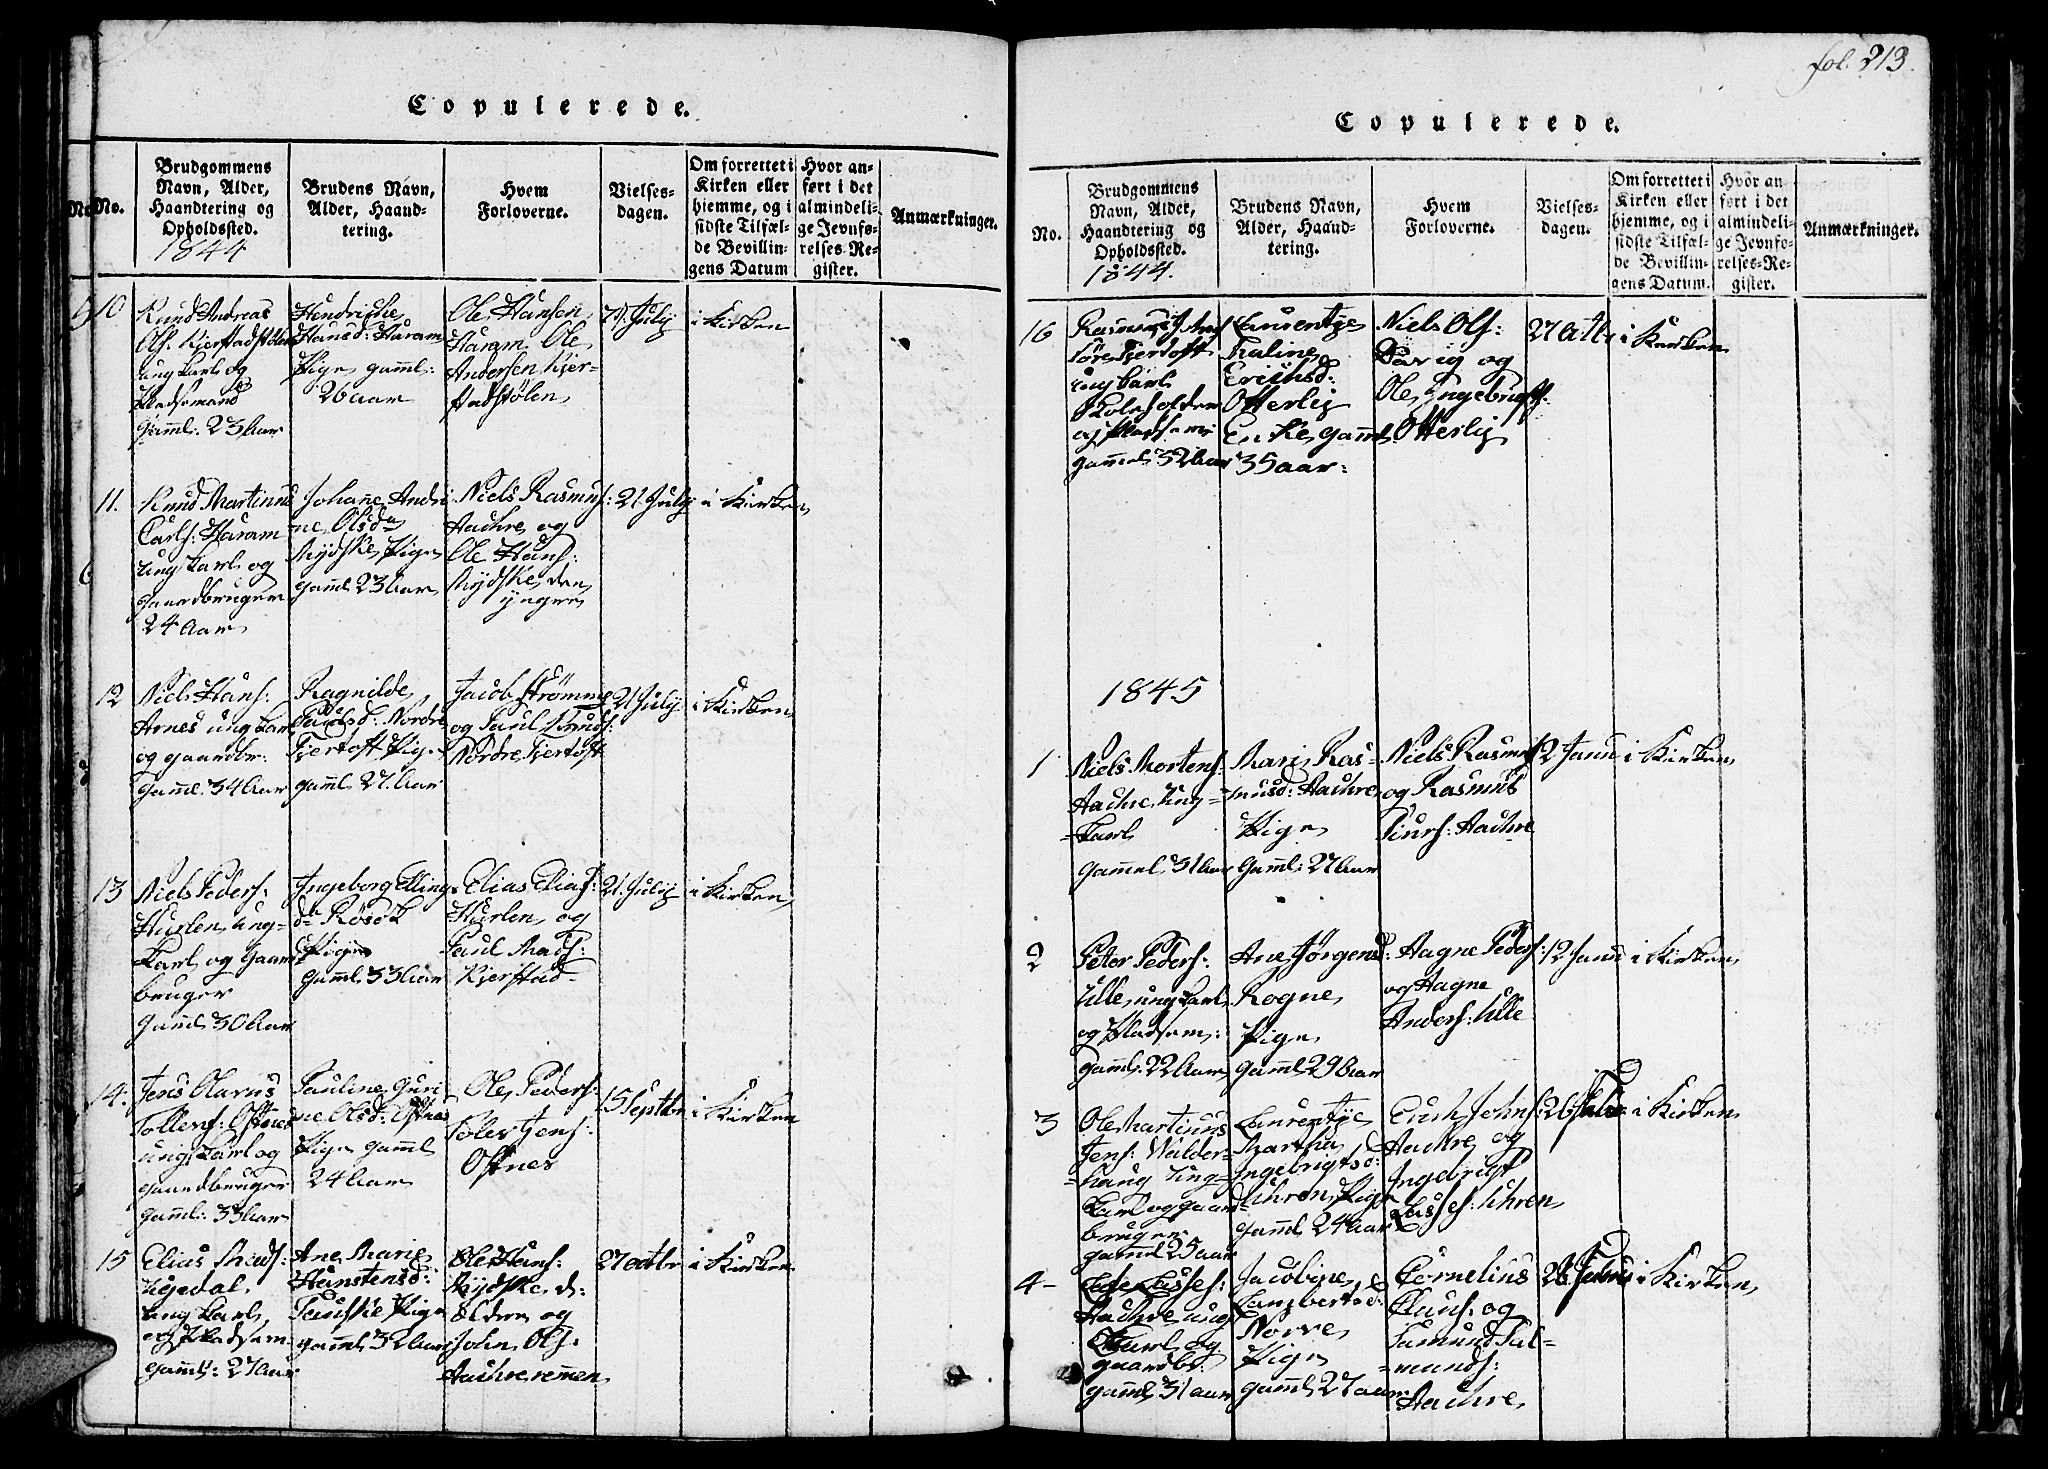 fol. 213.
Copulerede.
No.
No.
Brudgommens
Navn, Alder,
Haandtering og
Opholdssted.
1844
Brudens Navn,
Alder, Haand-
tering.
Hvem
Forloverne.
Vielses-
dagen.
Om forrettet i
Kirken eller
hjemme, og i
sidste Tilfæl-
de Bevillin-
gens Datum
Hvor an-
ført i det
almindeli-
ge Jevnfø-
relses-Re-
gister.
Anmærkninger.
10
Knud Andreas
Ols. Kjerstadstølen
ung Karl og
Pladsemand
gaml: 23 Aar
Hendrikke
Hansd: Haram
Pige gaml:
26 aar
Ole Hansen
Haram Ole
Andersen Kjer-
stadstølen
21 July
i Kirken
11.
Knud Martinus
Carls: Haram
ung Karl og
gaardbruger
24 Aar
Johane Andri
ne Olsd
Nydske Pige
gaml 23 Aar
Niels Rasmus:
Aachre og
Ole Hans:
Nydske den
yngre
21 July
i Kirken
12
Niels Hans:
Arnes ung Karl
og gaardbr:
gaml. 34 Aar
Ragnilde
Paulsd: Nordre
Fjertoft Pige
gaml. 27. Aar
Jacob Strømme
og Paul Knuds:
Nordre Fjertoft
21 July
i Kirken
13
Niels Peders:
Hurlen ung-
Karl og Gaard
bruger
Gaml 30 Aar
Ingeborg Ellings
d. Røsok
Pige
Gaml 33 Aar
Elias Elias:
Hurlen og
Paul Mads:
Kjerstad
21. July
i Kirken
14.
Jens Olarus
Tollefs: Ostnes
ung Karl og
gaardbruger
gaml: 33 Aar
Pauline Guri
ne Olsd: Ostnes
Pige gaml
24 Aar
Ole Peders:
Jens:
Ostnes
15 Septbr
i Kirken
15
Elias Mads:
ung Karl
og Pladsem
gaml: 27 Aar
Ane Marie
Hanstensd:
Pige
gaml 32 Aar
Ole Hans:
Nydske d:
Eldere og
John Ols:
Aachreremmen
27 octbr
i Kirken
Copulerede.
No.
Brudgommens
Navn, Alder,
Haandtering og
Opholdssted.
1844.
Brudens Navn,
Alder, Haand-
tering.
Hvem
Forloverne.
Vielses-
dagen.
Om forrettet i
Kirken eller
hjemme, og i
sidste Tilfæl-
de Bevillin-
gens Datum.
Hvor an-
ført i det
almindeli-
ge Jevnfo-
relses-Re-
gister.
Anmærkninger.
16
Rasmus
Søre Fjertoft
ung Karl
Skoleholder
og Pladsem
gammel 32 Aar
Laurentze
Kaline
Eriksd:
Otterlej
Enke gaml
35 aar:
Niels Ols:
og
Ole Ingebrigts.
Otterlej
27 octb
i Kirken
1845
1
Niels Mortens:
Aachre Ung-
Karl
gammel 31 Aar
Mari Ras-
musd: Aachre
Pige
Gaml: 27 Aar
Niels Rasmus
og Rasmus
Aachre
12 Janu
i Kirken
2
Peter Peders:
Ulle ung Karl
og Pladsem:
gaml: 22 Aar
Ane Jørgensd:
Rogne
Pige
gaml 29 Aar
Aagne Peders:
og Aagne
Anders: Ulle
12 Janu
i Kirken
3
Ole Martinus
Jens: Valder-
haug Ung-
Karl og gaard
bruger
gaml 25 aar
Laurentze
Martha
Ingebrigtsd:
Uhren Pige
gaml 24 Aar
Johns:
Aachre og
Ingebrigt
Lasses: Uhren
26
i Kirken
4
Lasses:
Aachre ung
Karl og
gaardbr
gaml 31 aar
Jacobine
Lambertsd:
Norve
Pige
gaml 27 aar
Cornelius
Claus: og
Samund Sal-
munds:
Aachre
26
i Kirken